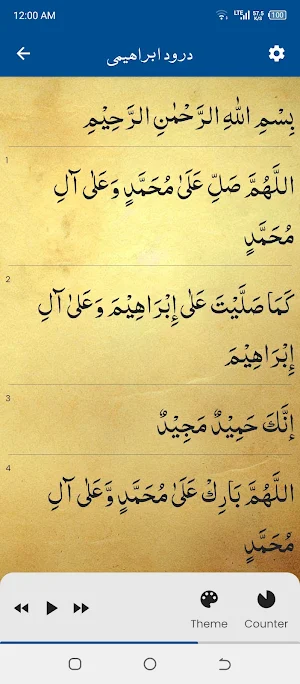 12:00 AM LTE 57.5 K/S 100
درود ابراهیمی
بِسْمِ اللهِ الرَّحْمٰنِ الرَّحِيْمِ
1
اللَّهُمَّ صَلِّ عَلَىٰ مُحَمَّدٍ وَعَلىٰ آلِ
مُحَمَّدٍ
2
كَمَا صَلَّيْتَ عَلىٰ إِبْرَاهِيْمَ وَعَلىٰ آلِ
إِبْرَاهِيْمَ
3
إِنَّكَ حَمِيْدٌ مَجِيْدٌ
4
اللَّهُمَّ بَارِكْ عَلَىٰ مُحَمَّدٍ وَّعَلىٰ آلِ
مُحَمَّدٍ
Theme Counter